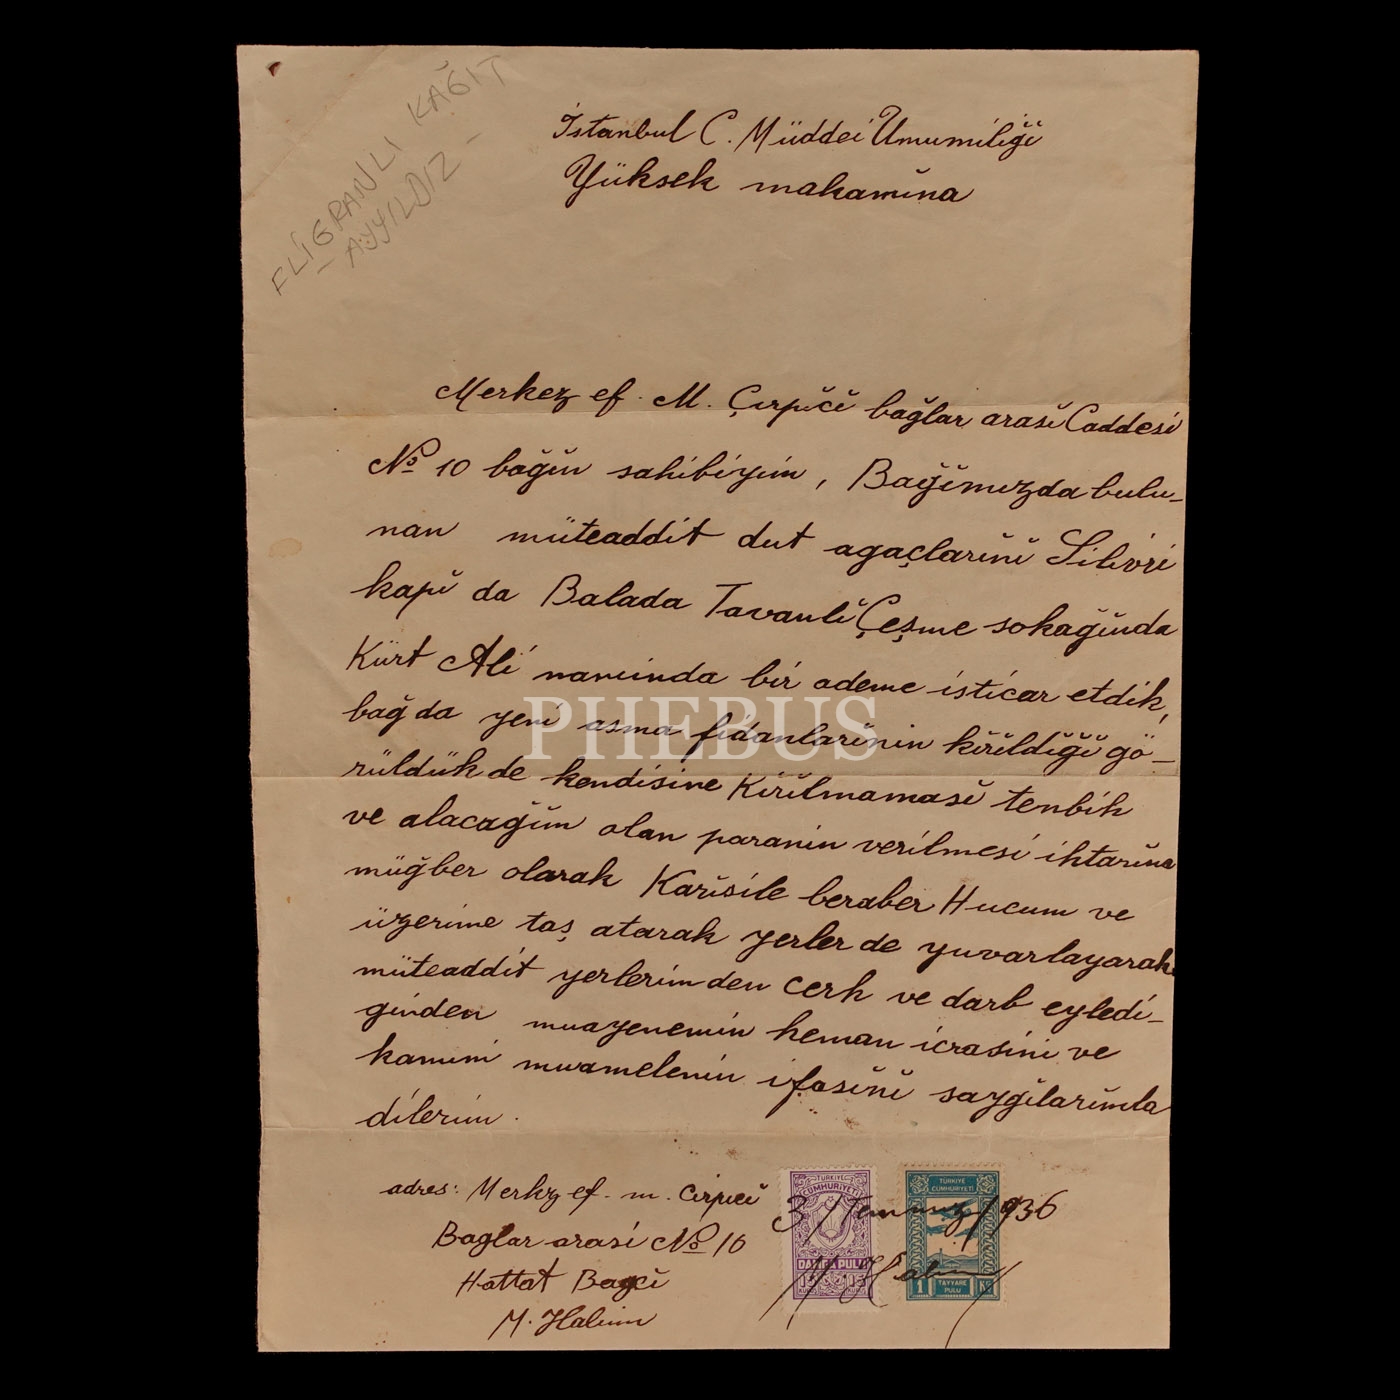 FLİGRANLI KAĞIT
– AYYILDIZ –
İstanbul C. Müddei Umumiliği
Yüksek makamina
Merkez ef. M. Çırpıcı bağlar arası Caddesi
No 10 bağın sahibiyim, Bağımızda bulu-
nan müteaddit dut agaçlarını Silivri
kapı da Balada Tavanlı Çeşme sokağında
Kürt Ali namında bir ademe isticar etdik,
bağ da yeni asma fidanlarının kırıldığı gö-
rüldük de kendisine Kırılmaması tenbih
ve alacağım olan paranin verilmesi ihtarına
müğber olarak Karısile beraber Hucum ve
üzerime taş atarak yerler de yuvarlayarak
müteaddit yerlerim den cerh ve darb eyledi-
ginden muayenemin heman icrasini ve
kanuni muamelenin ifasını saygılarımla
dilerim.
adres: Merkez ef. m. Cirpici
Baglar arasi No 10
Hattat Bagci
M. Halim
3/Temmuz/1936
M. Halim
TÜRKİYE
CÜMHURİYETİ
DAMGA PULU
TÜRKİYE
CÜMHURİYETİ
1 TAYYARE PULU KŞ
PHEBUS